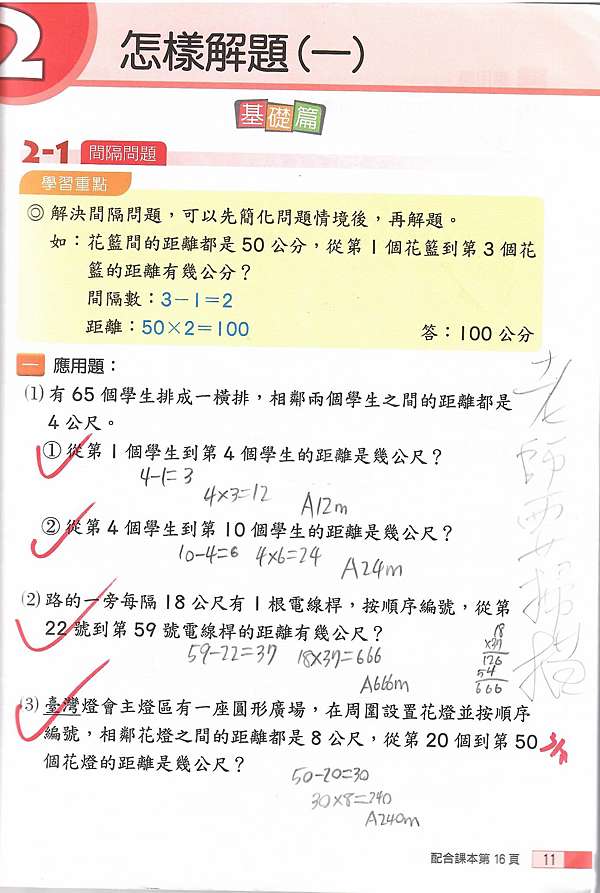 2
怎樣解題(一)
基礎篇
2-1 間隔問題
學習重點
◎ 解決間隔問題，可以先簡化問題情境後，再解題。
如：花籃間的距離都是 50 公分，從第 1 個花籃到第 3 個花
籃的距離有幾公分？
間隔數：3－1＝2
距離：50×2＝100
答：100 公分
一 應用題：
⑴ 有 65 個學生排成一橫排，相鄰兩個學生之間的距離都是
4 公尺。
① 從第 1 個學生到第 4 個學生的距離是幾公尺？
4-1=3
4×3=12 A12m
② 從第 4 個學生到第 10 個學生的距離是幾公尺？
10-4=6 4×6=24 A24m
⑵ 路的一旁每隔 18 公尺有 1 根電線桿，按順序編號，從第
22 號到第 59 號電線桿的距離有幾公尺？
59-22=37 18×37=666
A666m
18
×37
126
54
666
⑶ 臺灣燈會主燈區有一座圓形廣場，在周圍設置花燈並按順序
編號，相鄰花燈之間的距離都是 8 公尺，從第 20 個到第 50
個花燈的距離是幾公尺？
50-20=30
30×8=240
A240m
老師要掃描
配合課本第 16 頁 11